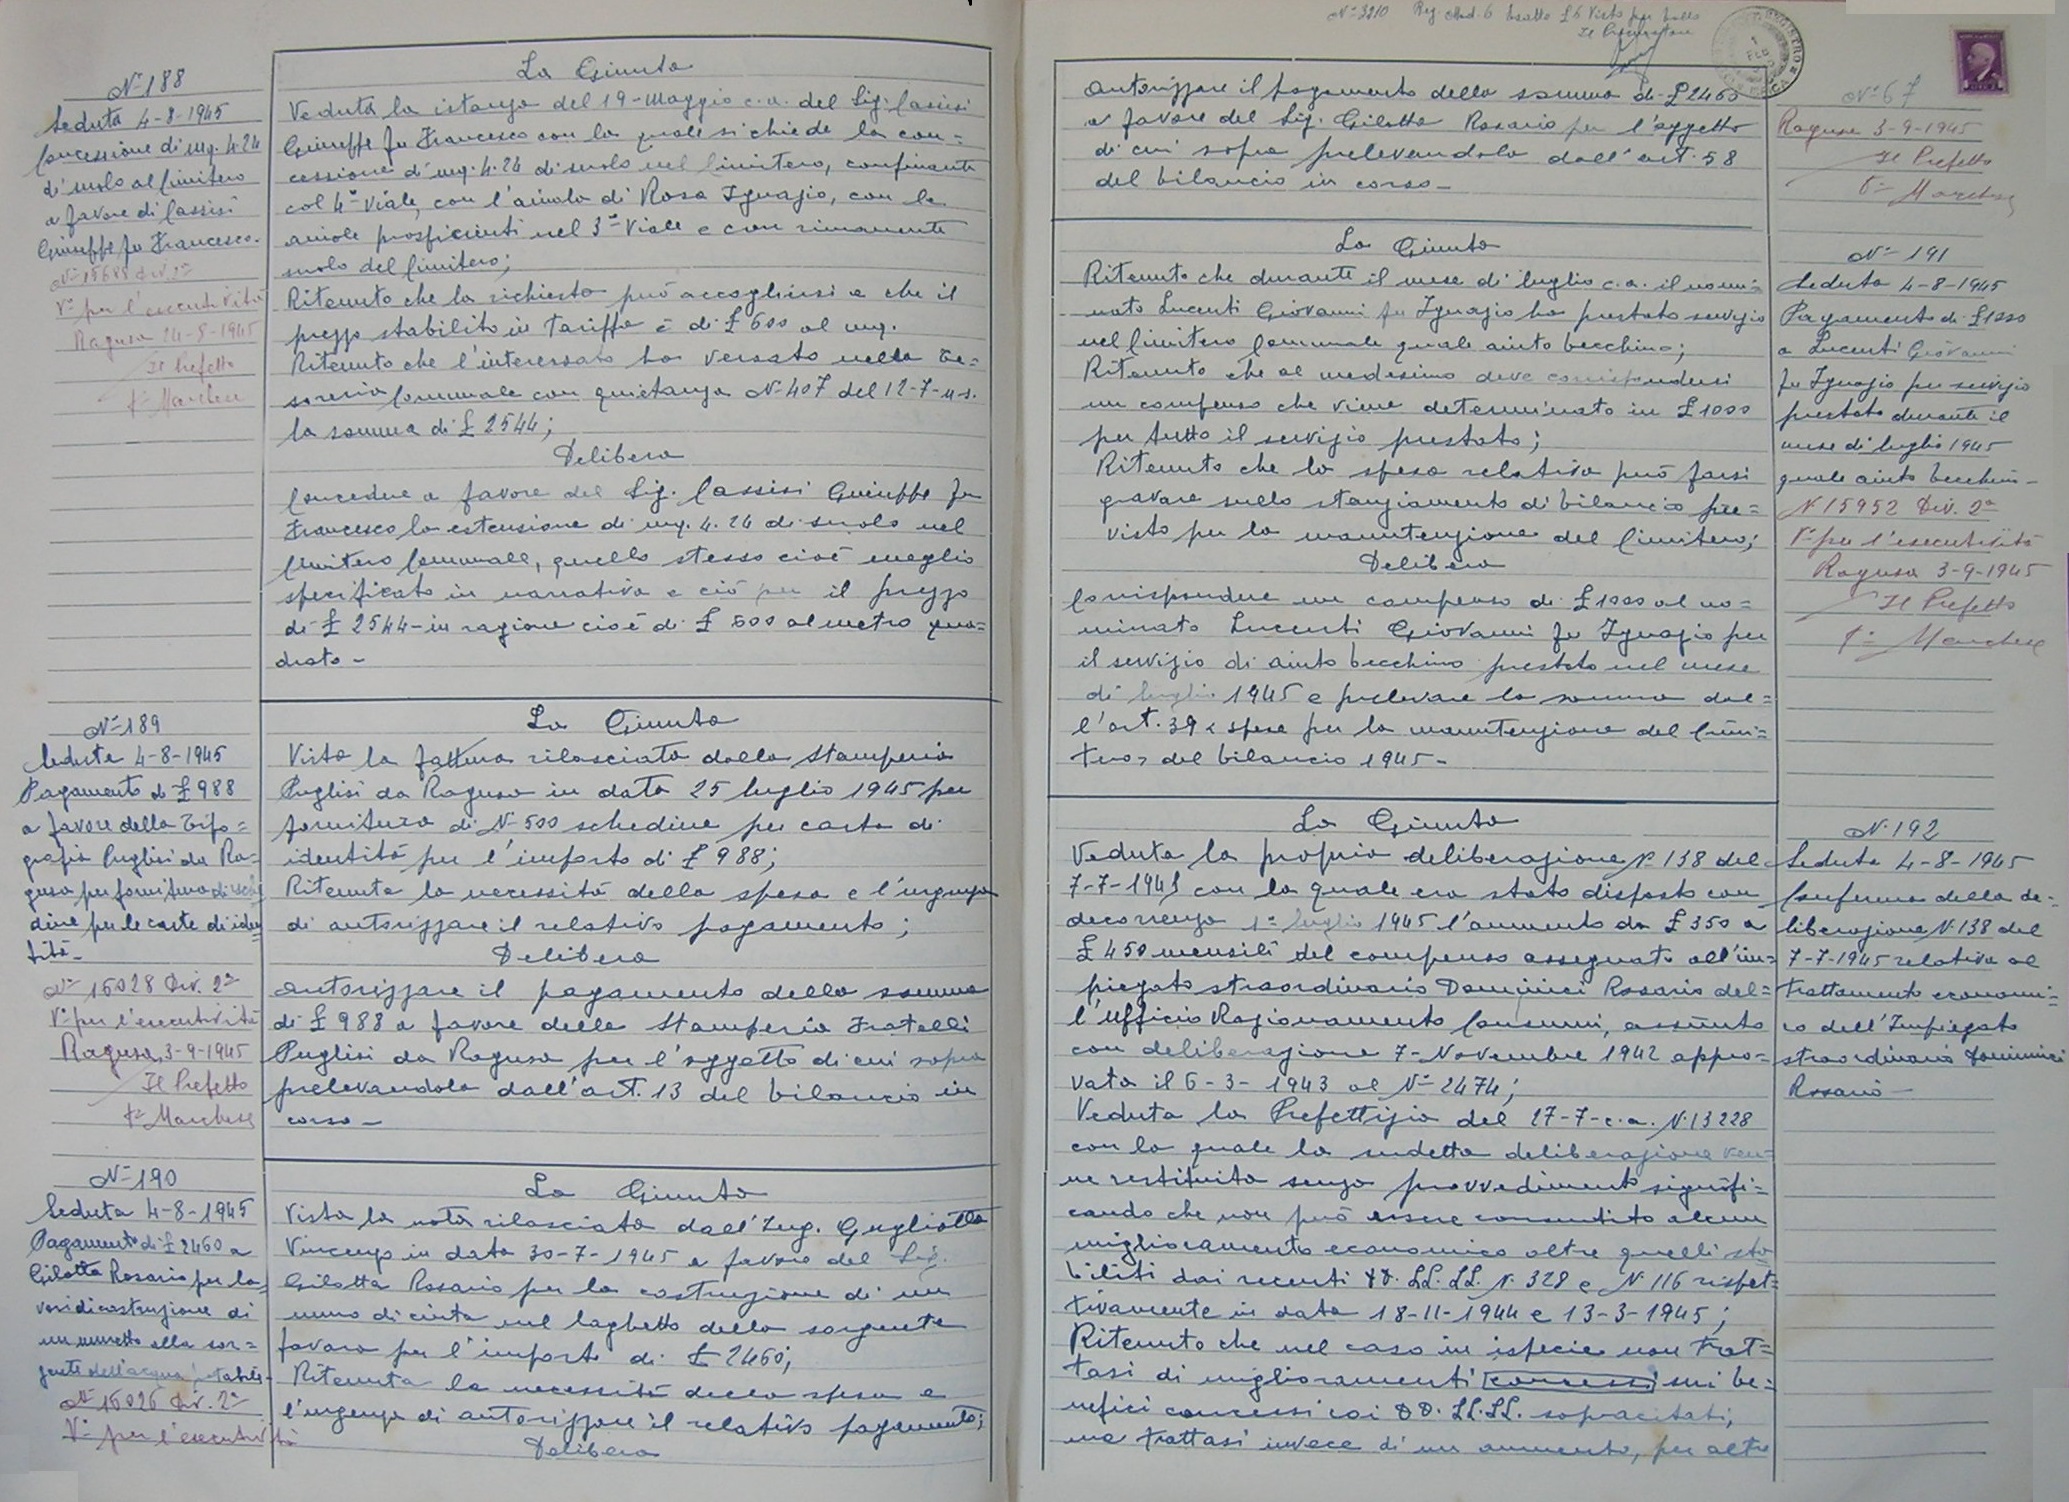 N° 188
Seduta 4-8-1945
Concessione di mq. 4.24
di suolo al Cimitero
a favore di Cassisi
Giuseppe fu Francesco.
N° 15688 Div. 2ª
V° per l'esecutività
Ragusa 24-8-1945
Il Prefetto
f° Marchese
La Giunta
Veduta la istanza del 19-Maggio c.a. del Sig. Cassisi
Giuseppe fu Francesco con la quale si chiede la con=
cessione di mq. 4.24 di suolo nel Cimitero, confinante
col 4° Viale, con l'aiuola di Rosa Ignazio, con le
aiuole prospicienti nel 3° Viale e con rimanente
suolo del Cimitero;
Ritenuto che la richiesta può accogliersi e che il
prezzo stabilito in tariffa è di £ 600 al mq.
Ritenuto che l'interessato ha versato nella Te=
soreria Comunale con quietanza N. 407 del 12-7-u.s.
la somma di £ 2544;
Delibera
Concedere a favore del Sig. Cassisi Giuseppe fu
Francesco la estensione di mq. 4.24 di suolo nel
Cimitero Comunale, quello stesso cioè meglio
specificato in narrativa e ciò per il prezzo
di £ 2544- in ragione cioè di £ 600 al metro qua=
drato -
N° 189
Seduta 4-8-1945
Pagamento di £ 988
a favore della Tipo=
grafia Puglisi da Ra=
gusa per fornitura di sche
dine per le carte di iden
tità -
N° 15028 Div. 2ª
V° per l'esecutività
Ragusa, 3-9-1945
Il Prefetto
f° Marchese
La Giunta
Vista la fattura rilasciata dalla Stamperia
Puglisi da Ragusa in data 25 luglio 1945 per
fornitura di N° 500 schedine per carta di
identità per l'importo di £ 988;
Ritenuta la necessità della spesa e l'urgenza
di autorizzare il relativo pagamento;
Delibera
autorizzare il pagamento della somma
di £ 988 a favore della Stamperia Fratelli
Puglisi da Ragusa per l'oggetto di cui sopra
prelevandola dall'art. 13 del bilancio in
corso -
N° 190
Seduta 4-8-1945
Pagamento di £ 2460 a
Gilotta Rosario per la=
vori di costruzione di
un muretto alla sor=
gente dell'acqua potabile -
N° 15026 Div. 2ª
V° per l'esecutività
La Giunta
Vista la nota rilasciata dall'Ing. Gugliotta
Vincenzo in data 30-7-1945 a favore del Sig.
Gilotta Rosario per la costruzione di un
muro di cinta nel laghetto della sorgente
favara per l'importo di £ 2460;
Ritenuta la necessità della spesa e
l'urgenza di autorizzare il relativo pagamento;
Delibera
N° 3210 Reg. Mod. 6 Esatto £ 6 Visto per bollo
Il Procuratore
autorizzare il pagamento della somma di £ 2460
a favore del Sig. Gilotta Rosario per l'oggetto
di cui sopra prelevandola dall'art. 58
del bilancio in corso -
N° 67
Ragusa 3-9-1945
Il Prefetto
f° Marchese
La Giunta
Ritenuto che durante il mese di luglio c.a. il nomi=
nato Lucenti Giovanni fu Ignazio ha prestato servizio
nel Cimitero Comunale quale aiuto becchino;
Ritenuto che al medesimo deve corrispondersi
un compenso che viene determinato in £ 1000
per tutto il servizio prestato;
Ritenuto che la spesa relativa può farsi
gravare sullo stanziamento di bilancio pre=
visto per la manutenzione del Cimitero;
Delibera
Corrispondere un compenso di £ 1000 al no=
minato Lucenti Giovanni fu Ignazio per
il servizio di aiuto becchino prestato nel mese
di luglio 1945 e prelevare la somma dal=
l'art. 39 < spese per la manutenzione del Cimi=
tero > del bilancio 1945 -
N° 191
Seduta 4-8-1945
Pagamento di £ 1000
a Lucenti Giovanni
fu Ignazio per servizio
prestato durante il
mese di luglio 1945
quale aiuto becchino -
N 15952 Div. 2ª
V° per l'esecutività
Ragusa 3-9-1945
Il Prefetto
f° Marchese
La Giunta
Veduta la propria deliberazione N° 138 del
7-7-1945 con la quale era stato disposto con
decorrenza 1° luglio 1945 l'aumento da £ 350 a
£ 450 mensili del compenso assegnato all'im=
piegato straordinario Dominici Rosario del=
l'Ufficio Razionamento Consumi, assunto
con deliberazione 7-Novembre 1942 appro=
vata il 6-3-1943 al N° 2474;
Veduta la Prefettizia del 27-7-c.a. N. 13228
con la quale la sudetta deliberazione ven=
ne restituita senza provvedimenti signifi=
cando che non può essere consentito alcun
miglioramento economico oltre quelli sta
biliti dai recenti DD. LL. LL. N. 328 e N. 116 rispet=
tivamente in data 18-11-1944 e 13-3-1945;
Ritenuto che nel caso in ispecie non trat=
tasi di miglioramenti concessi sui be=
nefici concessi coi DD. LL. LL. sopracitati;
ma trattasi invece di un aumento, per altro
N. 192
Seduta 4-8-1945
Conferma della de=
liberazione N. 138 del
7-7-1945 relativa al
trattamento economi=
co dell'Impiegato
straordinario Dominici
Rosario -